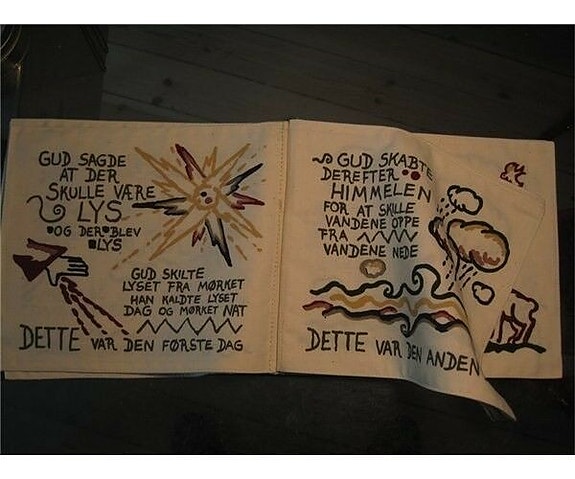 GUD SAGDE
AT DER
SKULLE VÆRE
LYS
OG DER BLEV
LYS
GUD SKILTE
LYSET FRA MØRKET
HAN KALDTE LYSET
DAG OG MØRKET NAT
DETTE VAR DEN FØRSTE DAG
GUD SKABTE
DEREFTER
HIMMELEN
FOR AT SKILLE
VANDENE OPPE
FRA
VANDENE NEDE
DETTE VAR DEN ANDEN